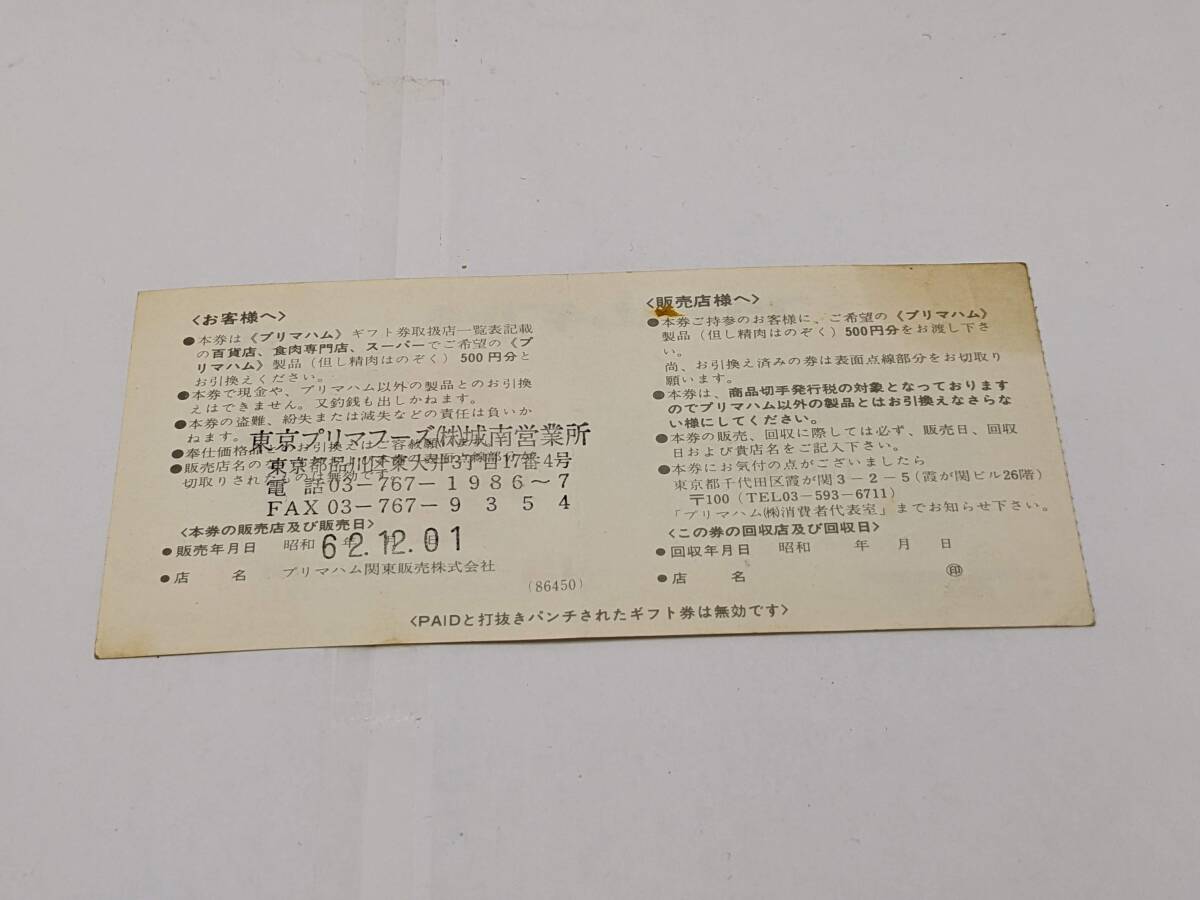 〈お客様へ〉
●本券は《プリマハム》ギフト券取扱店一覧表記載
の百貨店、食肉専門店、スーパーでご希望の《プ
リマハム》製品（但し精肉はのぞく）500円分と
お引換えください。
●本券で現金や、プリマハム以外の製品とのお引換
えはできません。又釣銭も出しかねます。
●本券の盗難、紛失または滅失などの責任は負いか
ねます。
●奉仕価格 お引換えはご容赦願
●販売店名の 表面点線部分が
切取りされたものは無効です
東京プリマフーズ㈱城南営業所
東京都品川区東大井3丁目17番4号
電話03-767-1986~7
FAX03-767-9354
〈本券の販売店及び販売日〉
●販売年月日 昭和 年 月 日
62.12.01
●店名 プリマハム関東販売株式会社
(86450)
〈販売店様へ〉
●本券ご持参のお客様に、ご希望の《プリマハム》
製品（但し精肉はのぞく）500円分をお渡し下さ
い。
尚、お引換え済みの券は表面点線部分をお切取り
願います。
●本券は、商品切手発行税の対象となっております
のでプリマハム以外の製品とはお引換えなさらな
い様にしてください。
●本券の販売、回収に際しては必ず、販売日、回収
日および貴店名をご記入下さい。
●本券にお気付の点がございましたら
東京都千代田区霞が関3-2-5(霞が関ビル26階)
〒100 (TEL03-593-6711)
「プリマハム㈱消費者代表室」までお知らせ下さい。
〈この券の回収店及び回収日〉
●回収年月日 昭和 年 月 日
●店名 ㊞
〈PAIDと打抜きパンチされたギフト券は無効です〉